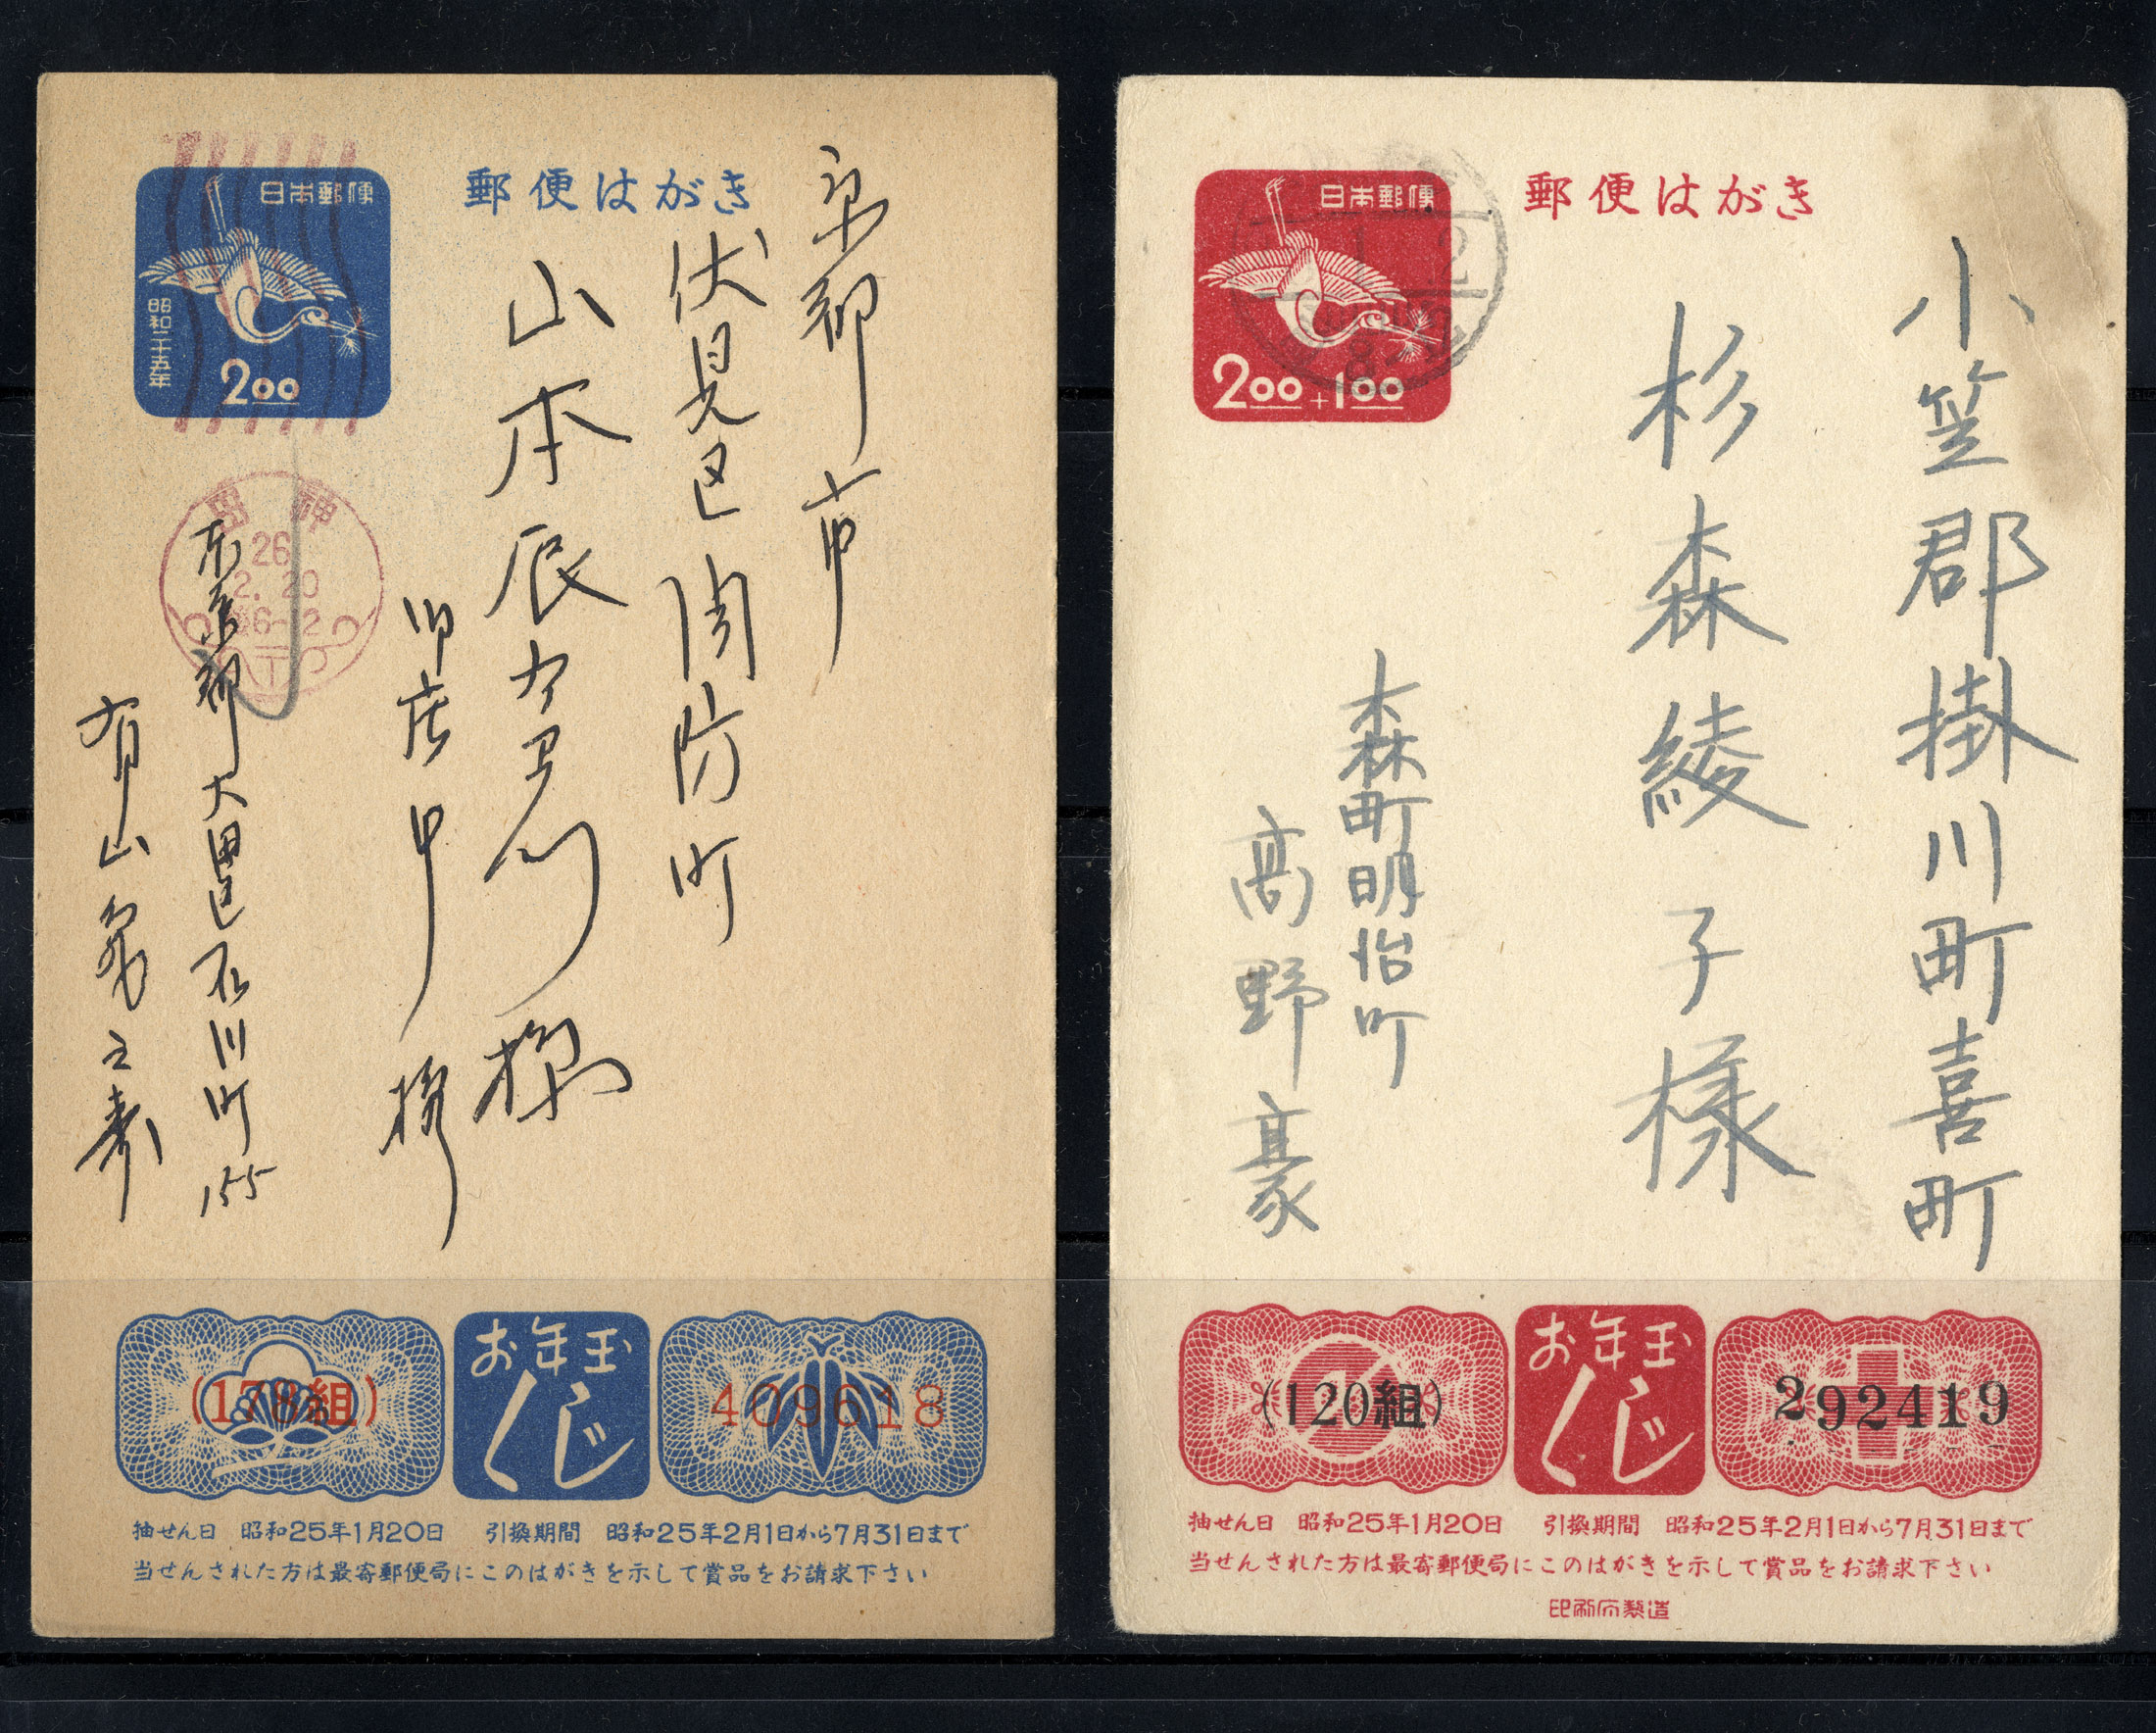 日本郵便
昭和二十五年
200
郵便はがき
京都市
伏見区 周防町
山本辰
様
東京都大田区石川町155
有山
26
2. 20
(178組)
お年玉
くじ
409618
抽せん日 昭和25年1月20日 引換期間 昭和25年2月1日から7月31日まで
当せんされた方は最寄郵便局にこのはがきを示して賞品をお請求下さい
日本郵便
200+100
郵便はがき
小笠郡掛川町喜町
杉森綾子様
森町明治町
高野豪
(120組)
お年玉
くじ
292419
抽せん日 昭和25年1月20日 引換期間 昭和25年2月1日から7月31日まで
当せんされた方は最寄郵便局にこのはがきを示して賞品をお請求下さい
印刷庁製造